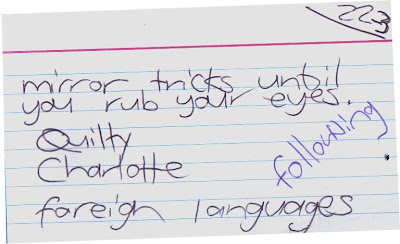 223
mirror tricks until
you rub your eyes.
Quilty
Charlotte
following
foreign languages